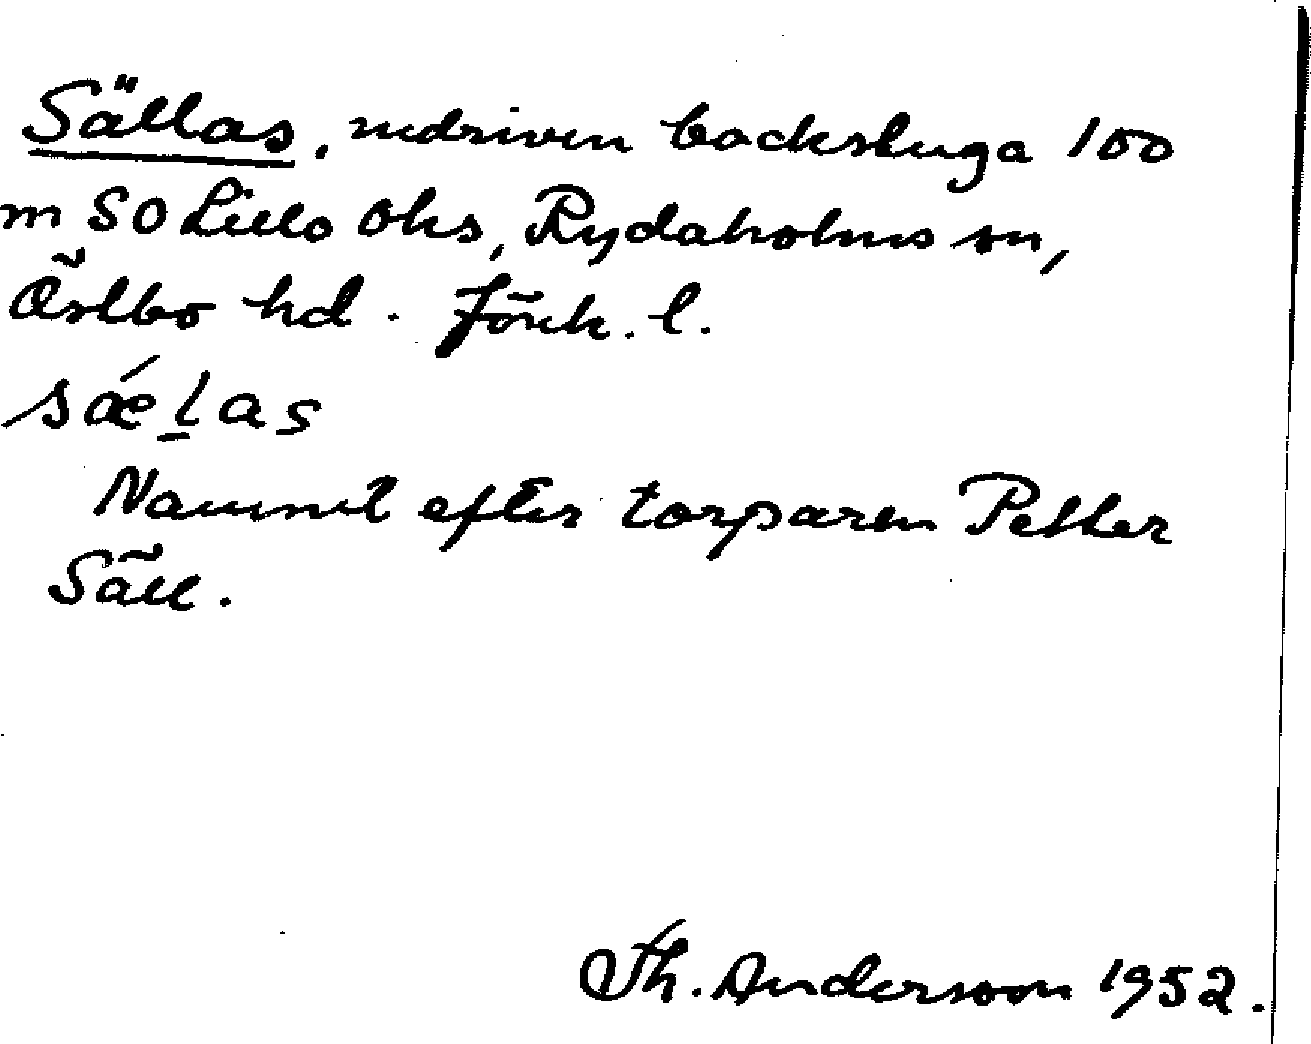 Sällas, nedriven backstuga 100
m SO Lilla Ohs, Rydaholms sn,
Östbo hd. Jönk. l.
sǽl̠as
Namnet efter torparen Pether
Säll.
Th. Andersson 1952.